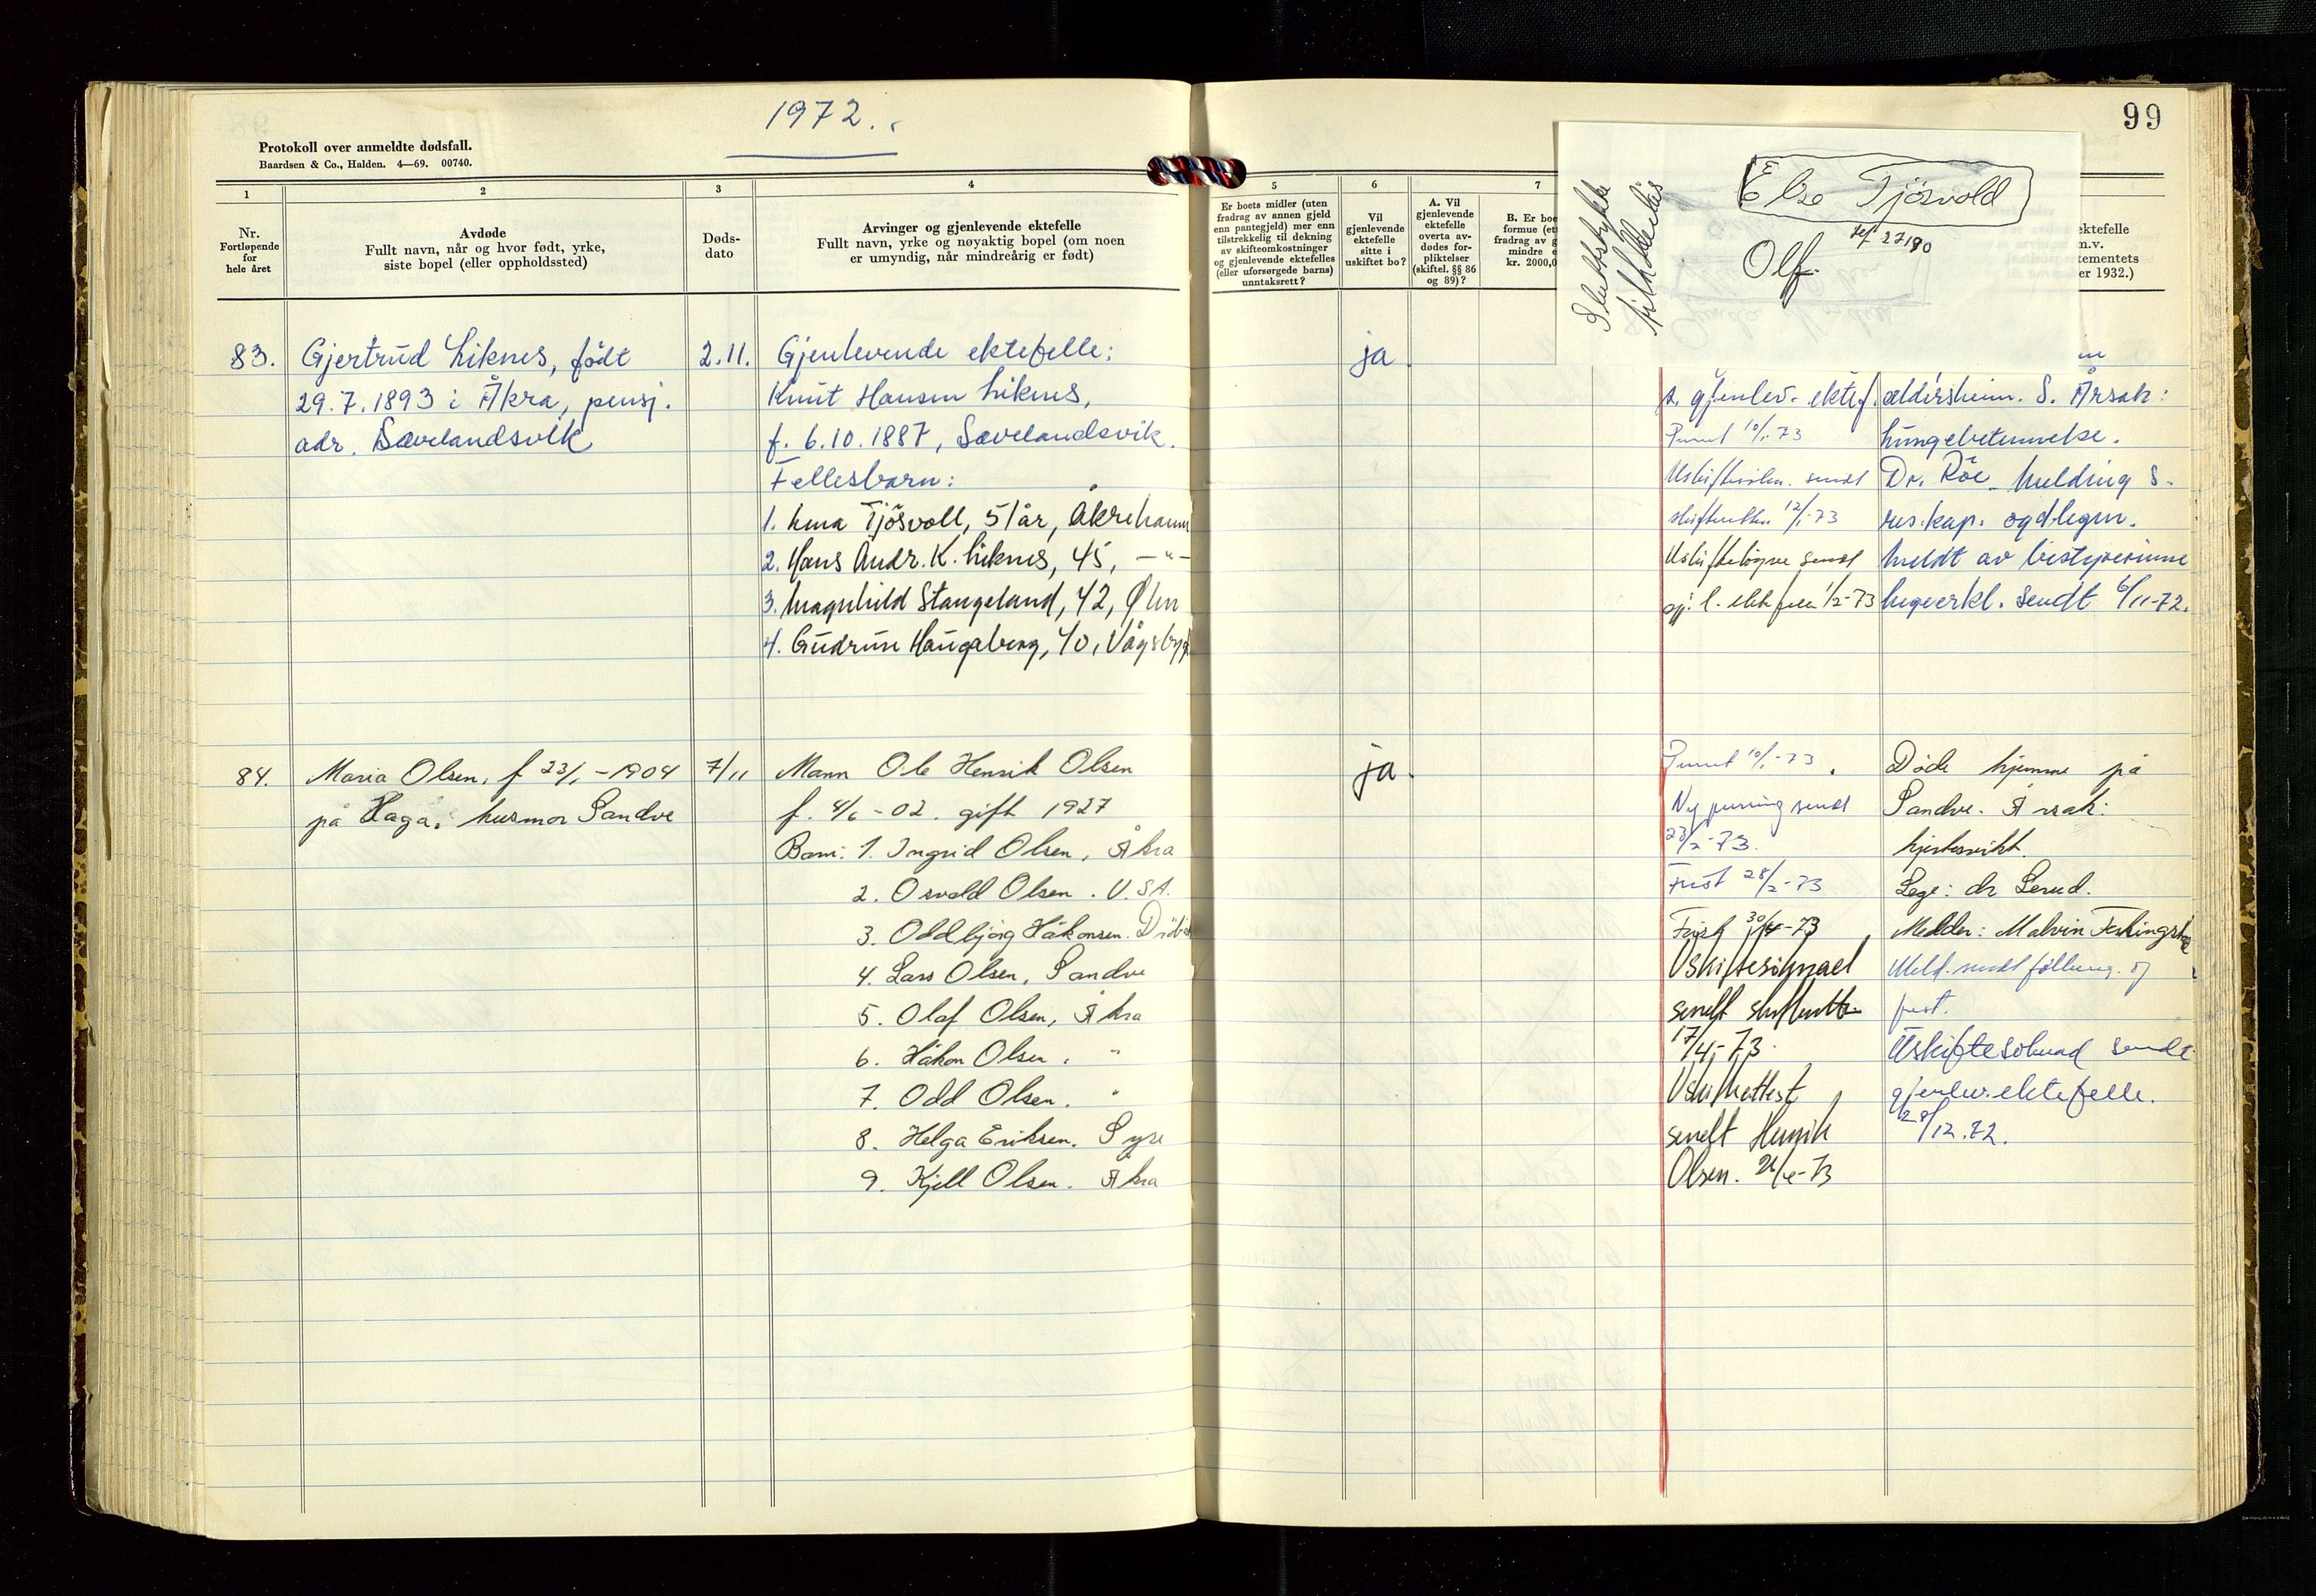 1972.
99
Protokoll over anmeldte dødsfall.
Baardsen & Co., Halden. 4—69. 00740.
1
2
3
4
5
6
7
Nr.
Fortløpende
for
hele året
Avdøde
Fullt navn, når og hvor født, yrke,
siste bopel (eller oppholdssted)
Døds-
dato
Arvinger og gjenlevende ektefelle
Fullt navn, yrke og nøyaktig bopel (om noen
er umyndig, når mindreårig er født)
Er boets midler (uten
fradrag av annen gjeld
enn pantegjeld) mer enn
tilstrekkelig til dekning
av skifteomkostninger
og gjenlevende ektefelles
(eller uforsørgede barns)
unntaksrett?
Vil
gjenlevende
ektefelle
sitte i
uskiftet bo?
A. Vil
gjenlevende
ektefelle
overta av-
dødes for-
pliktelser
(skiftel. §§ 86
og 89)?
B. Er boe
formue (et
fradrag av g
mindre e
kr. 2000,0
Else Tjösvold
tlf 27190
Olf.
ektefelle
m.v.
tementets
er 1932.)
83.
Gjertrud Liknes, født
29.7.1893 i Åkra, pensj.
adr. Sævelandsvik
2.11.
Gjenlevende ektefelle:
Knut Hansen Liknes,
f. 6.10.1887, Sævelandsvik.
Fellesbarn:
1. Lina Tjösvoll, 51 år, Åkrehamn
2. Hans Andr. K. Liknes, 45, —"—
3. Magnhild Stangeland, 42, Ølen
4. Gudrun Haugaberg, 40, Vågsbygd
ja.
s. gjenlev. ektef.
Purret 10/1-73
sendt
skifteretten 12/1-73
sendt
gj. l. ektefelle 1/2-73
aldersheim. D. Årsak:
lungebetennelse.
Dr. Röe. Melding s.
res.kap. og dlegen.
Meldt av bestyrerinne
legeerkl. sendt 6/11-72.
84.
Maria Olsen, f 23/1-1904
på Haga, husmor Sandve
7/11
Mann Ole Henrik Olsen
f. 4/6-02. gift 1927
Barn: 1. Ingrid Olsen, Åkra
2. Osvald Olsen. U.S.A.
3. Oddbjörg Håkonsen.
4. Lars Olsen, Sandve
5. Olaf Olsen, Åkra
6. Håkon Olsen. "
7. Odd Olsen. "
8. Helga Eriksen. Syre
9. Kjell Olsen. Åkra
ja.
Purret 10/1-73.
Ny purring sendt
23/2-73.
Frist 28/2-73
Frist 30/4-73
Uskiftesöknad
sendt skifterette
17/4-73.
Uskifteattest
sendt Henrik
Olsen.
Döde hjemme på
Sandve. Årsak:
hjertesvikt.
Lege: dr Lerud.
Melder: Malvin
Meld. sendt
prest.
Uskiftesöknad sendt
gjenlev. ektefelle.
28/12.72.